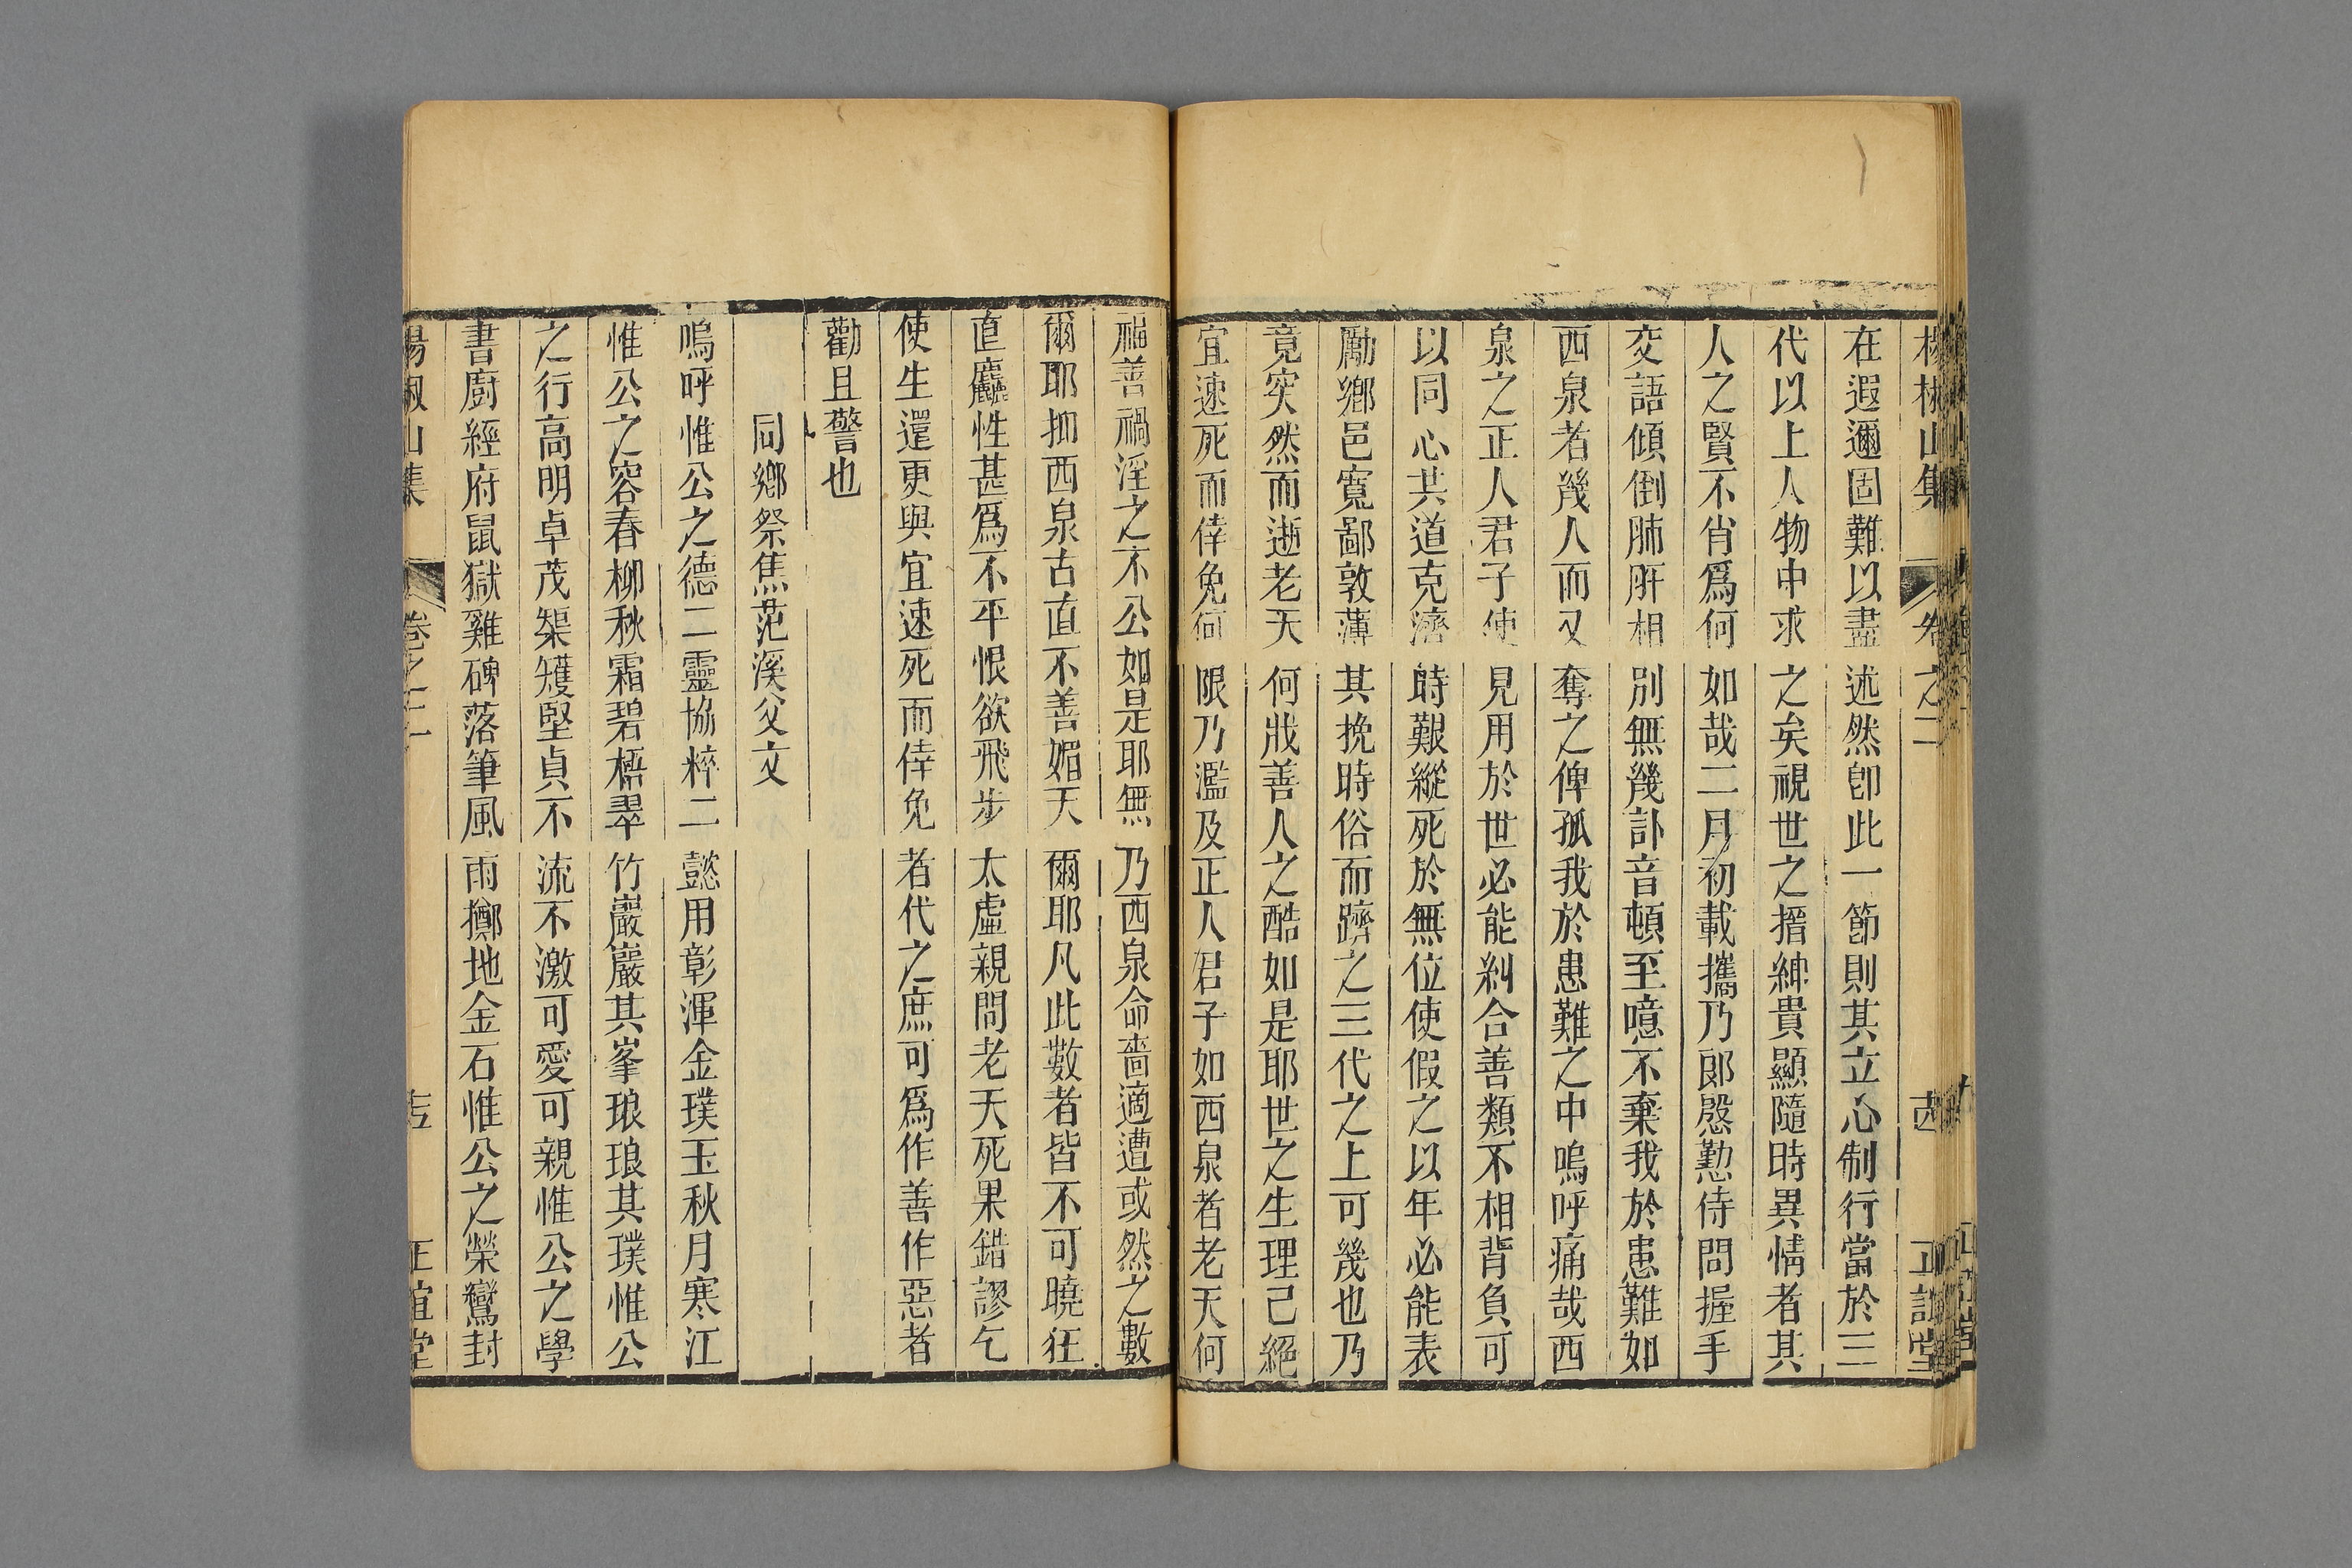 楊椒山集 卷之二 十四 正誼堂
在遐邇固難以盡述然卽此一節則其立心制行當於三
代以上人物中求之矣視世之搢紳貴顯隨時異情者其
人之賢不肖爲何如哉二月初載攜乃郞慇懃侍問握手
交語傾倒肺肝相別無幾訃音頓至噫不棄我於患難如
西泉者幾人而又奪之俾孤我於患難之中嗚呼痛哉西
泉之正人君子使見用於世必能糾合善類不相背負可
以同心共道克濟時艱縱死於無位使假之以年必能表
勵鄉邑寬鄙敦薄其挽時俗而躋之三代之上可幾也乃
竟突然而逝老天何戕善人之酷如是耶世之生理己絕
宜速死而倖免何限乃濫及正人君子如西泉者老天何
福善禍淫之不公如是耶無乃西泉命嗇適遭或然之數
爾耶抑西泉古直不善媚天爾耶凡此數者皆不可曉狂
直麤性甚爲不平恨欲飛步太虛親問老天死果錯謬乞
使生還更與宜速死而倖免者代之庶可爲作善作惡者
勸且警也
同鄉祭焦范溪父文
嗚呼惟公之德二靈協粹二懿用彰渾金璞玉秋月寒江
惟公之容春柳秋霜碧梧翠竹巖巖其峯琅琅其璞惟公
之行高明卓茂榘矱堅貞不流不激可愛可親惟公之學
書廚經府鼠獄雞碑落筆風雨擲地金石惟公之榮鸞封
楊椒山集 卷之二 正誼堂